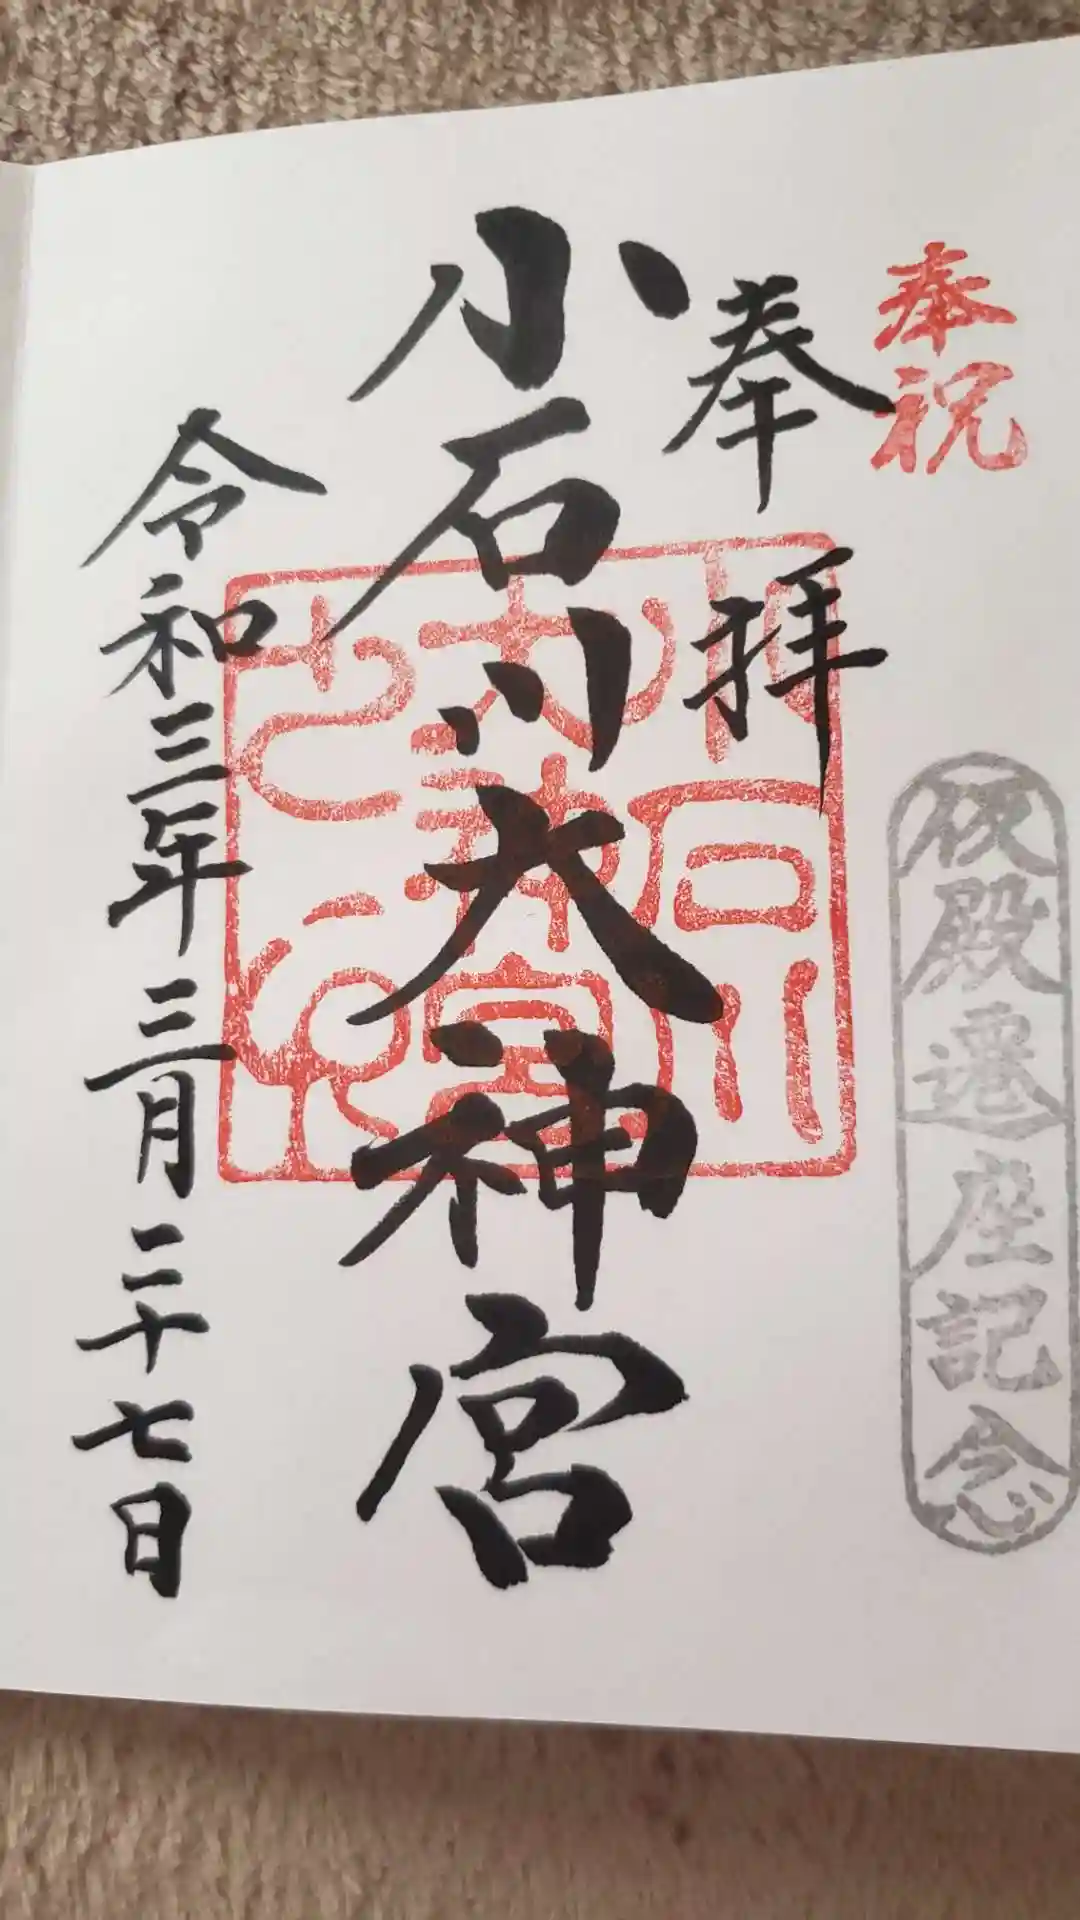 奉祝
仮殿遷座記念
奉拝
小石川大神宮
令和三年三月二十七日
小石川大神宮之印